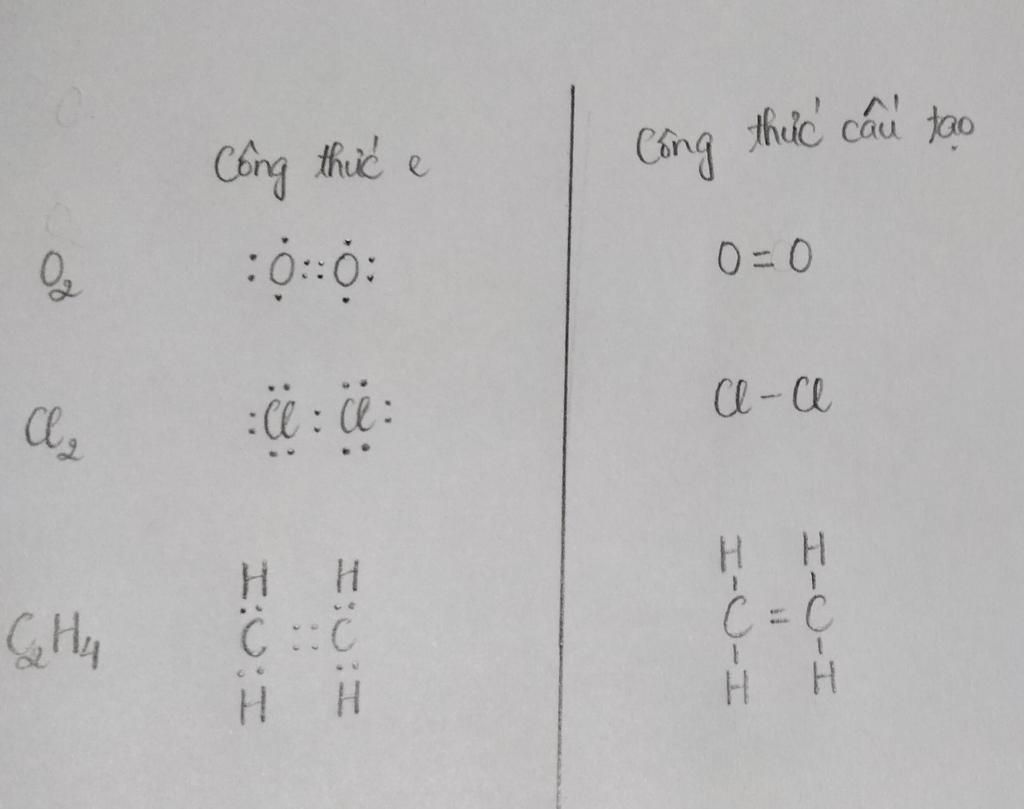 Công thức e
Công thức cấu tạo
O₂ :Ȯ::Ȯ: O=O
Cl₂ :C̈l:C̈l: Cl-Cl
H H H H
C₂H₄ C::C C=C
H H H H